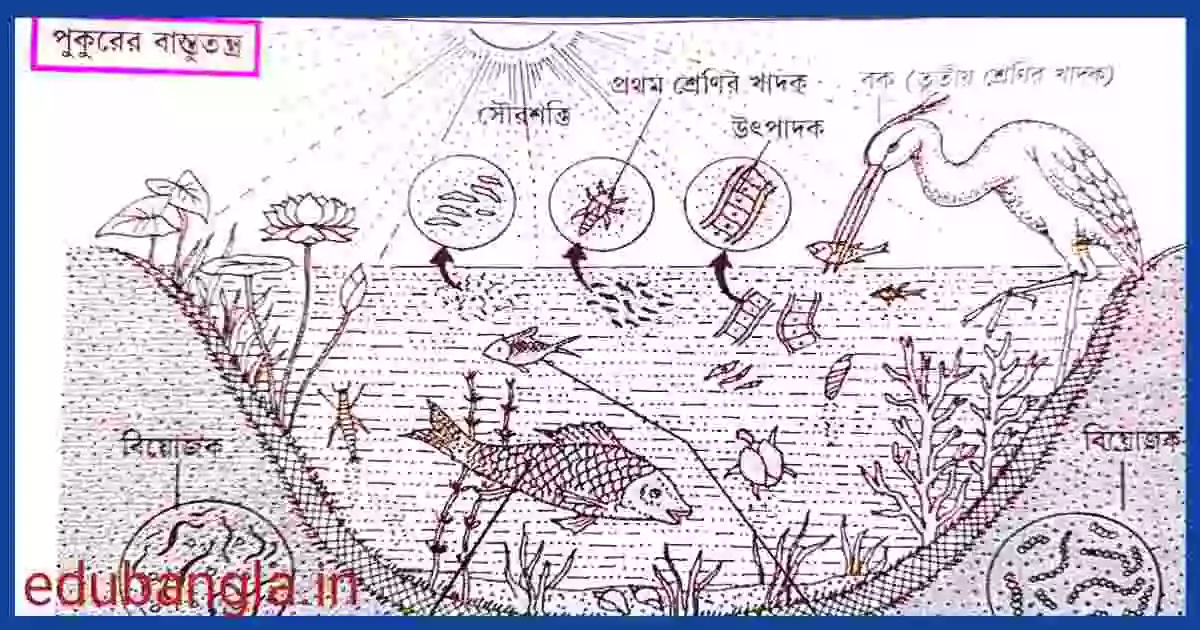 পুকুরের বাস্তুতন্ত্র
প্রথম শ্রেণির খাদক
বক (তৃতীয় শ্রেণির খাদক)
সৌরশক্তি
উৎপাদক
বিয়োজক
বিয়োজক
edubangla.in